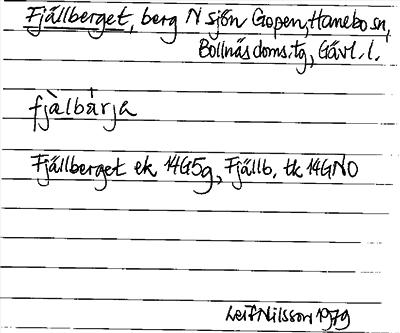 Fjällberget, berg N sjön Gopen, Hanebo sn,
Bollnäs doms.tg, Gävl. l.
fjàlbárja
Fjällberget ek 14G5g, Fjällb, tk 14GNO
Leif Nilsson 1979